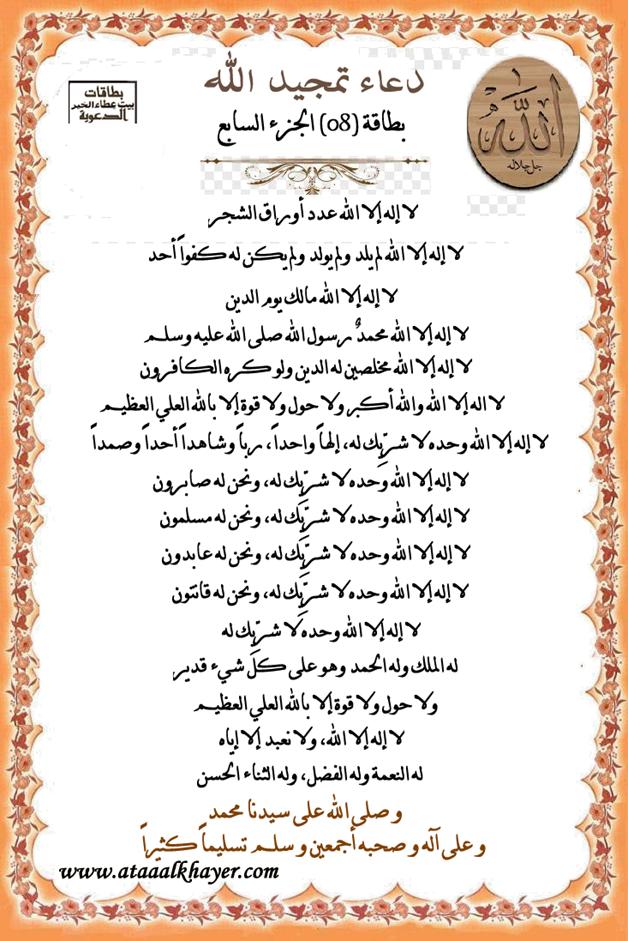 دعاء تمجيد الله
بطاقة (08) الجزء السابع
بطاقات
بيت عطاء الخير
الدعوية
الله
جل جلاله
لا إله إلا الله عدد أوراق الشجر
لا إله إلا الله لم يلد ولم يولد ولم يكن له كفواً أحد
لا إله إلا الله مالك يوم الدين
لا إله إلا الله محمدٌ رسول الله صلى الله عليه وسلم
لا إله إلا الله مخلصين له الدين ولو كره الكافرون
لا اله إلا الله والله أكبر ولا حول ولا قوة إلا بالله العلي العظيم
لا إله إلا الله وحده لا شرِيك له، إلهاً واحداً، رباً وشاهداً أحداً وصمداً
لا إله إلا الله وحده لا شرِيك له، ونحن له صابرون
لا إله إلا الله وحده لا شرِيك له، ونحن له مسلمون
لا إله إلا الله وحده لا شرِيك له، ونحن له عابدون
لا إله إلا الله وحده لا شرِيك له، ونحن له قانتون
لا إله إلا الله وحده لا شرِيك له
له الملك وله الحمد وهو على كلَ شيء قدير
ولا حول ولا قوة إلا بالله العلي العظيم
لا إله إلا الله، ولا نعبد إلا إياه
له النعمة وله الفضل، وله الثناء الحسن
وصلى الله على سيدنا محمد
وعلى آله وصحبه أجمعين وسلم تسليماً كثيراً
www.ataaalkhayer.com